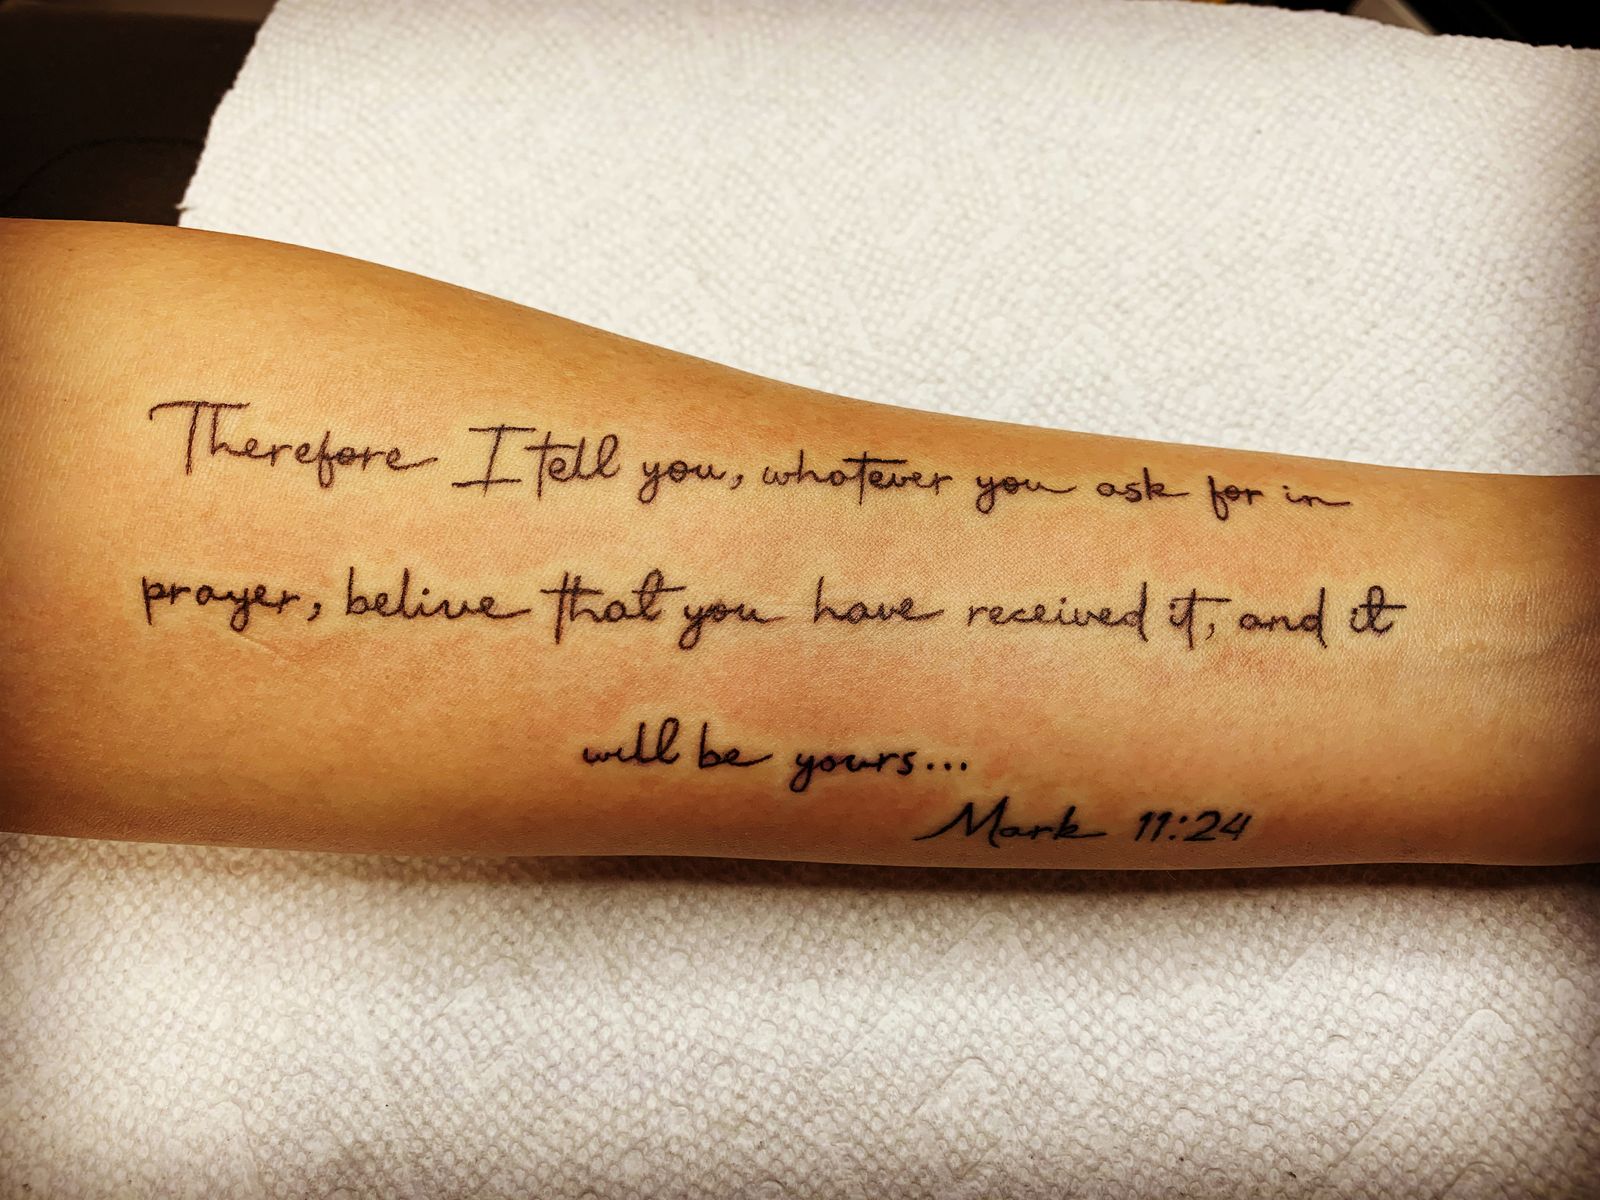 Therefore I tell you, whatever you ask for in
prayer, belive that you have received it, and it
will be yours...
Mark 11:24